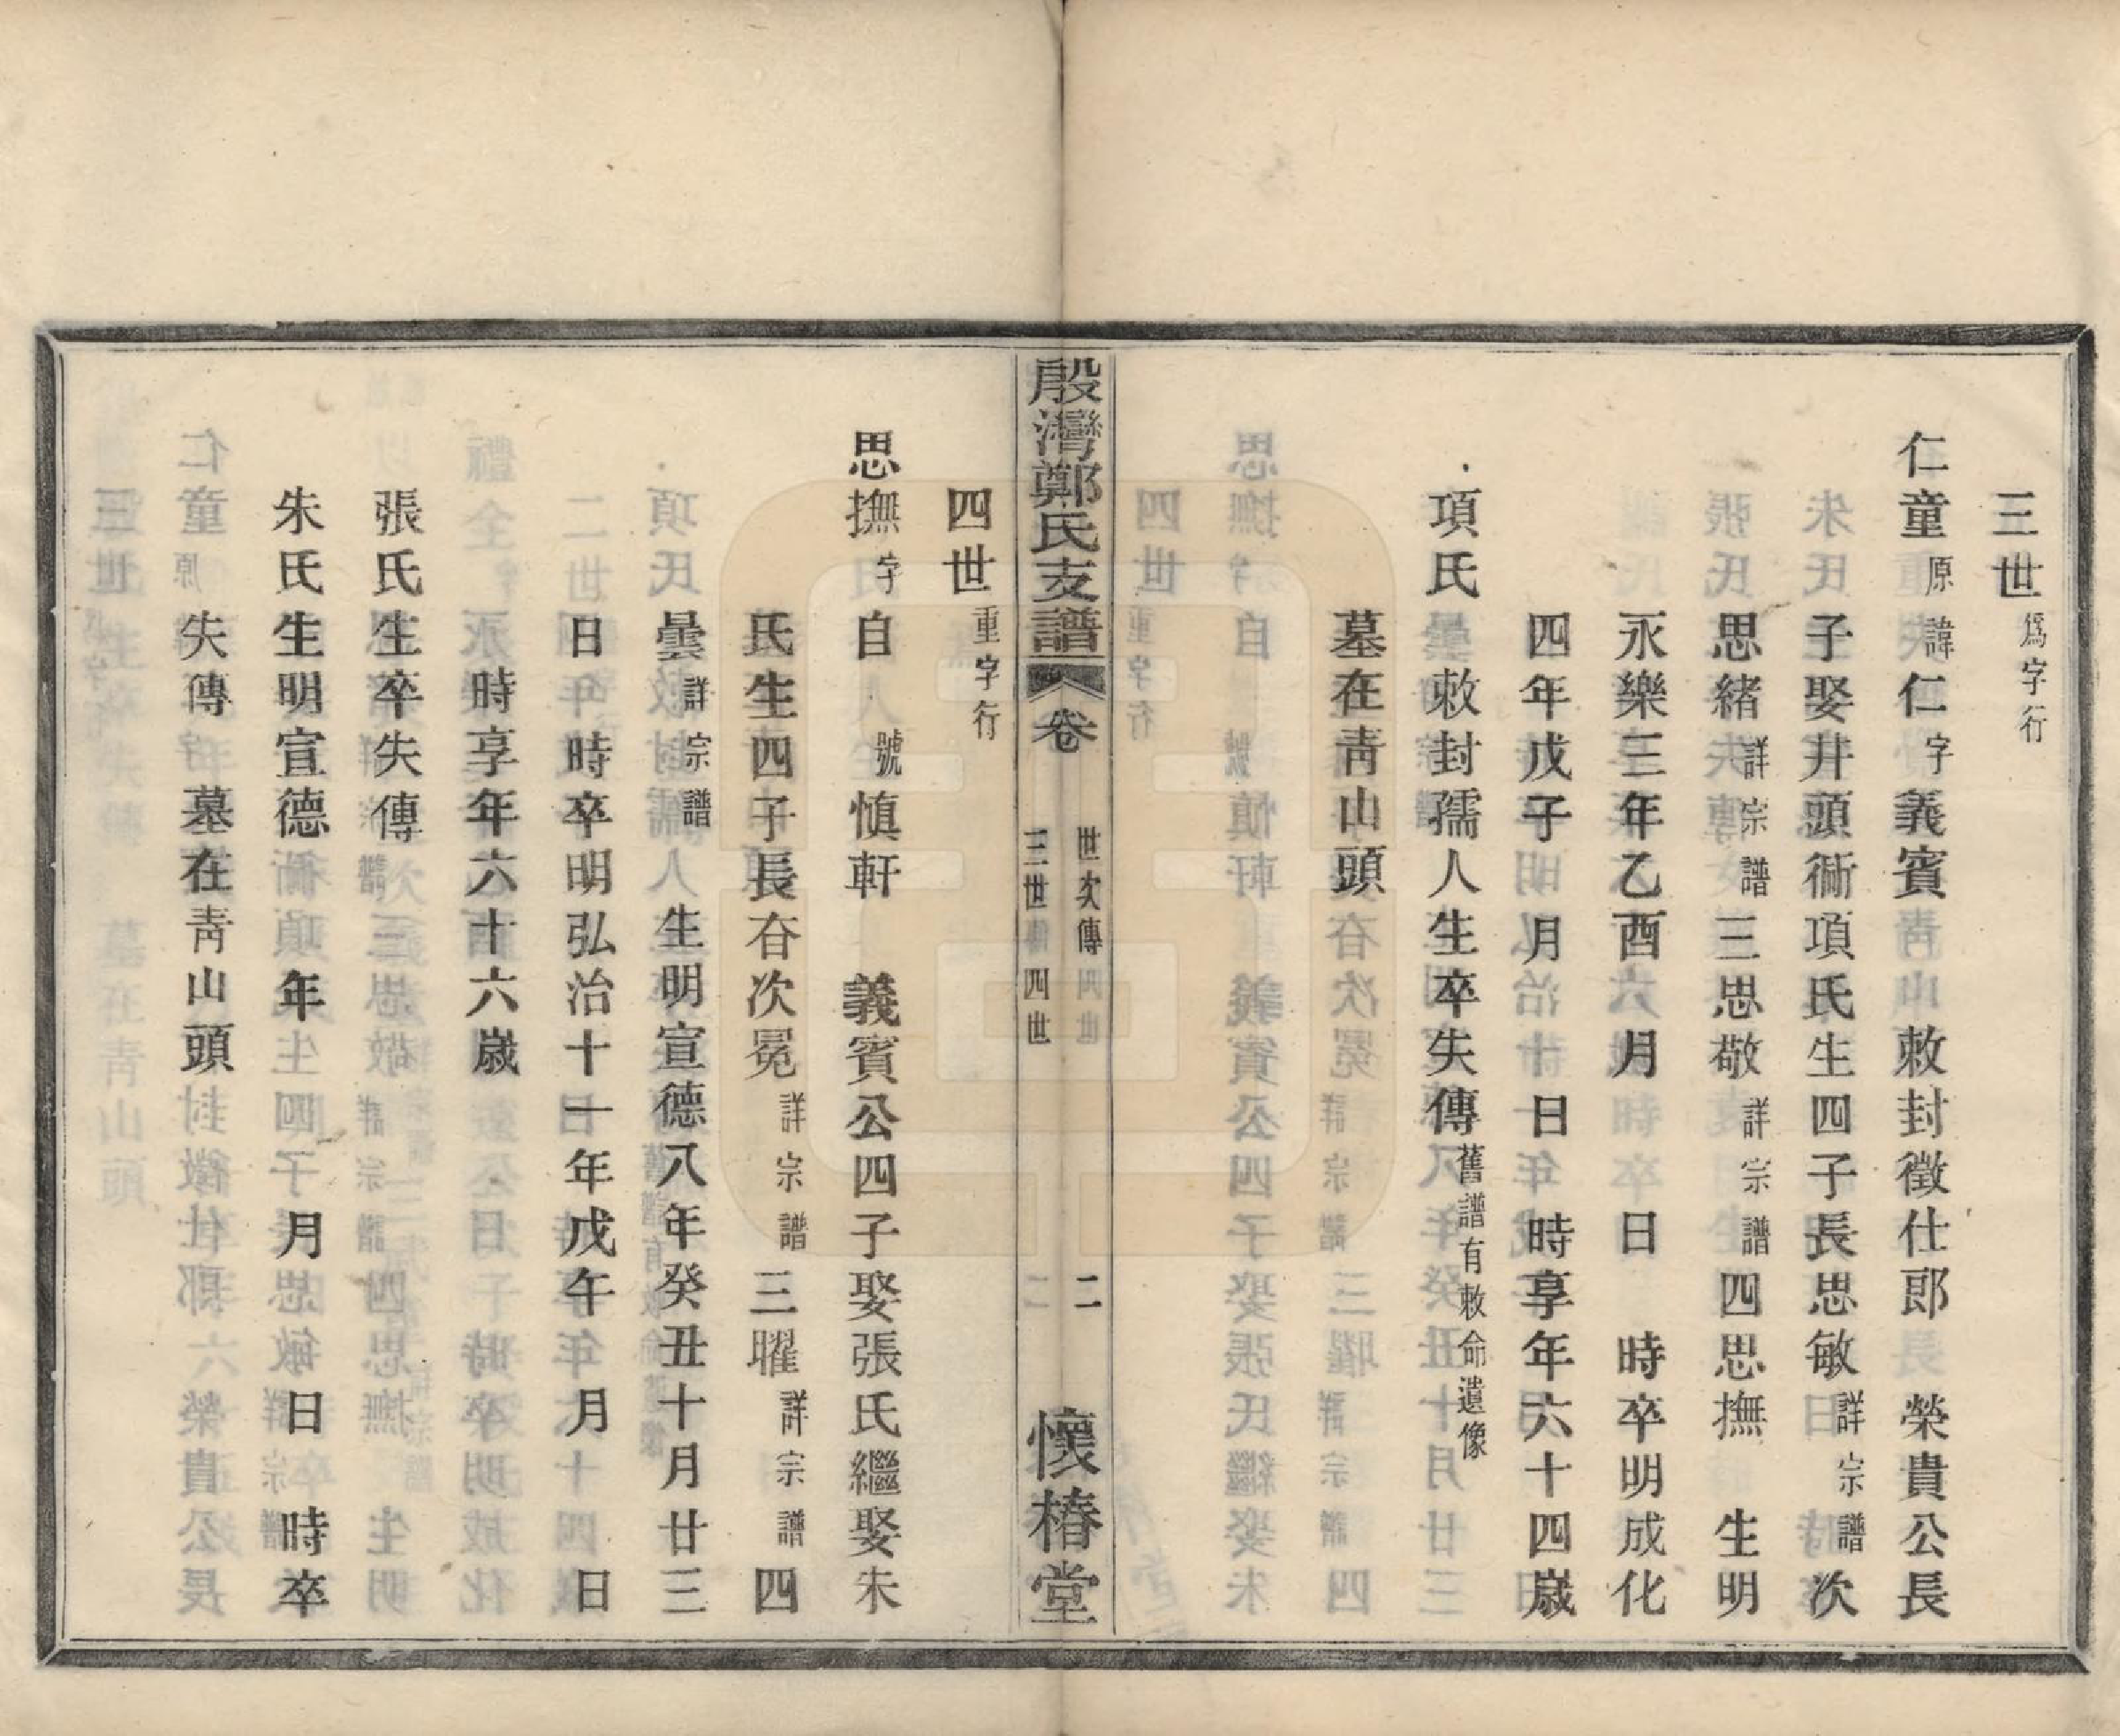 三世爲字行
仁童原諱仁字義賓 敕封徵仕郎 榮貴公長
子娶井頭衕項氏生四子長思敏詳宗譜次
思緒詳宗譜三思敬詳宗譜四思撫 生明
永樂三年乙酉 月 日 時卒明成化
四年戊子 月 日 時享年六十四歲
項氏 敕封孺人生卒失傳舊譜有敕命遺像
墓在靑山頭
殷灣鄭氏支譜 卷 世次傳 三世 四世 二 懷椿堂
四世重字行
思撫字自 號慎軒 義賓公四子娶張氏繼娶朱
氏生四子長旾次冕詳宗譜三曜詳宗譜四
曇詳宗譜 生明宣德八年癸丑十月廿三
日 時卒明弘治十一年戊午 月 日
時享年六十六歲
張氏生卒失傳
朱氏生明宣德 年 月 日 時卒
失傳 墓在靑山頭